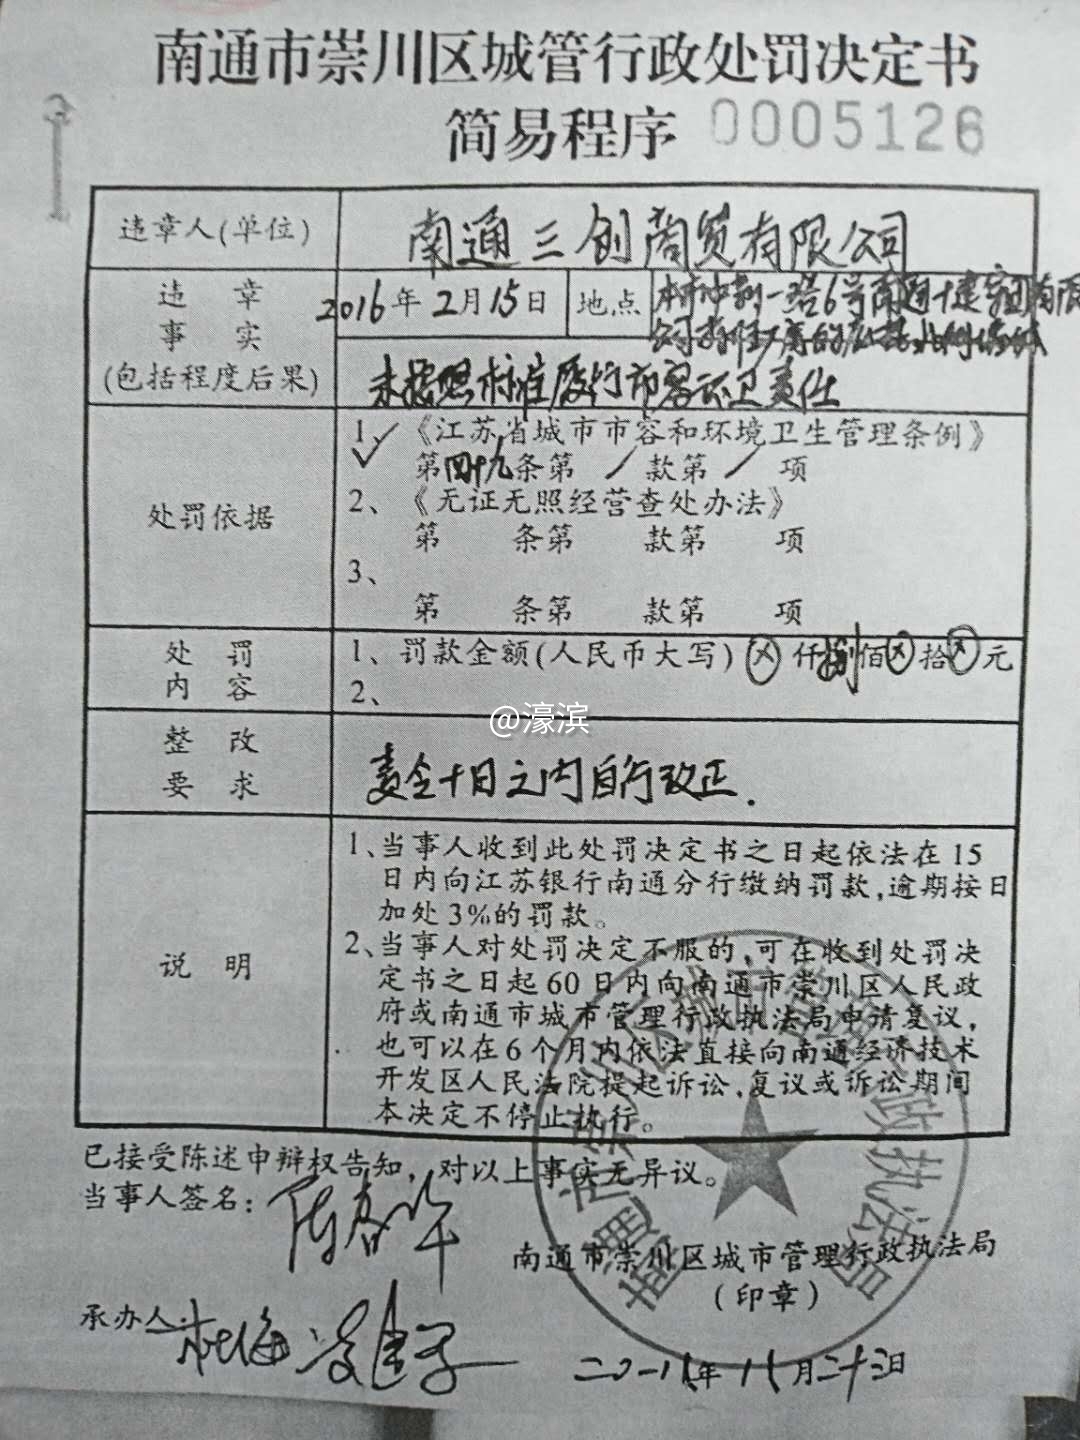 南通市崇川区城管行政处罚决定书
简易程序 0005126
违章人(单位) 南通三创商贸有限公司
违章 2016年2月15日 地点 本市冲剪一路6号南通十建集团有限
事实
(包括程度后果) 未按照标准履行市容环卫责任
1、✓《江苏省城市市容和环境卫生管理条例》
第四十九条第/款第/项
处罚依据 2、《无证无照经营查处办法》
第 条第 款第 项
3、
第 条第 款第 项
处罚 1、罚款金额(人民币大写)ⓧ仟捌佰ⓧ拾ⓧ元
内容 2、
@濠滨
整改
要求 责令十日之内自行改正.
1、当事人收到此处罚决定书之日起依法在15
日内向江苏银行南通分行缴纳罚款,逾期按日
加处3%的罚款。
2、当事人对处罚决定不服的,可在收到处罚决
说明 定书之日起60日内向南通市崇川区人民政
府或南通市城市管理行政执法局申请复议,
也可以在6个月内依法直接向南通经济技术
开发区人民法院提起诉讼,复议或诉讼期间
本决定不停止执行。
已接受陈述申辩权告知,对以上事实无异议。
当事人签名:
南通市崇川区城市管理行政执法局
(印章)
承办人:
南通市崇川区城市管理行政执法局